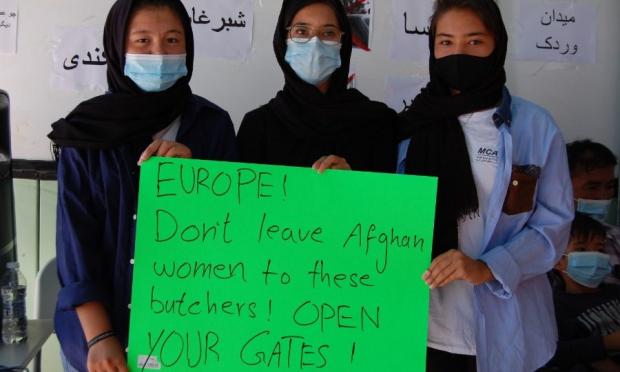 شبرغان
میدان
وردک
MCA
EUROPE!
Don't leave Afghan
women to these
butchers! OPEN
YOUR GATES!